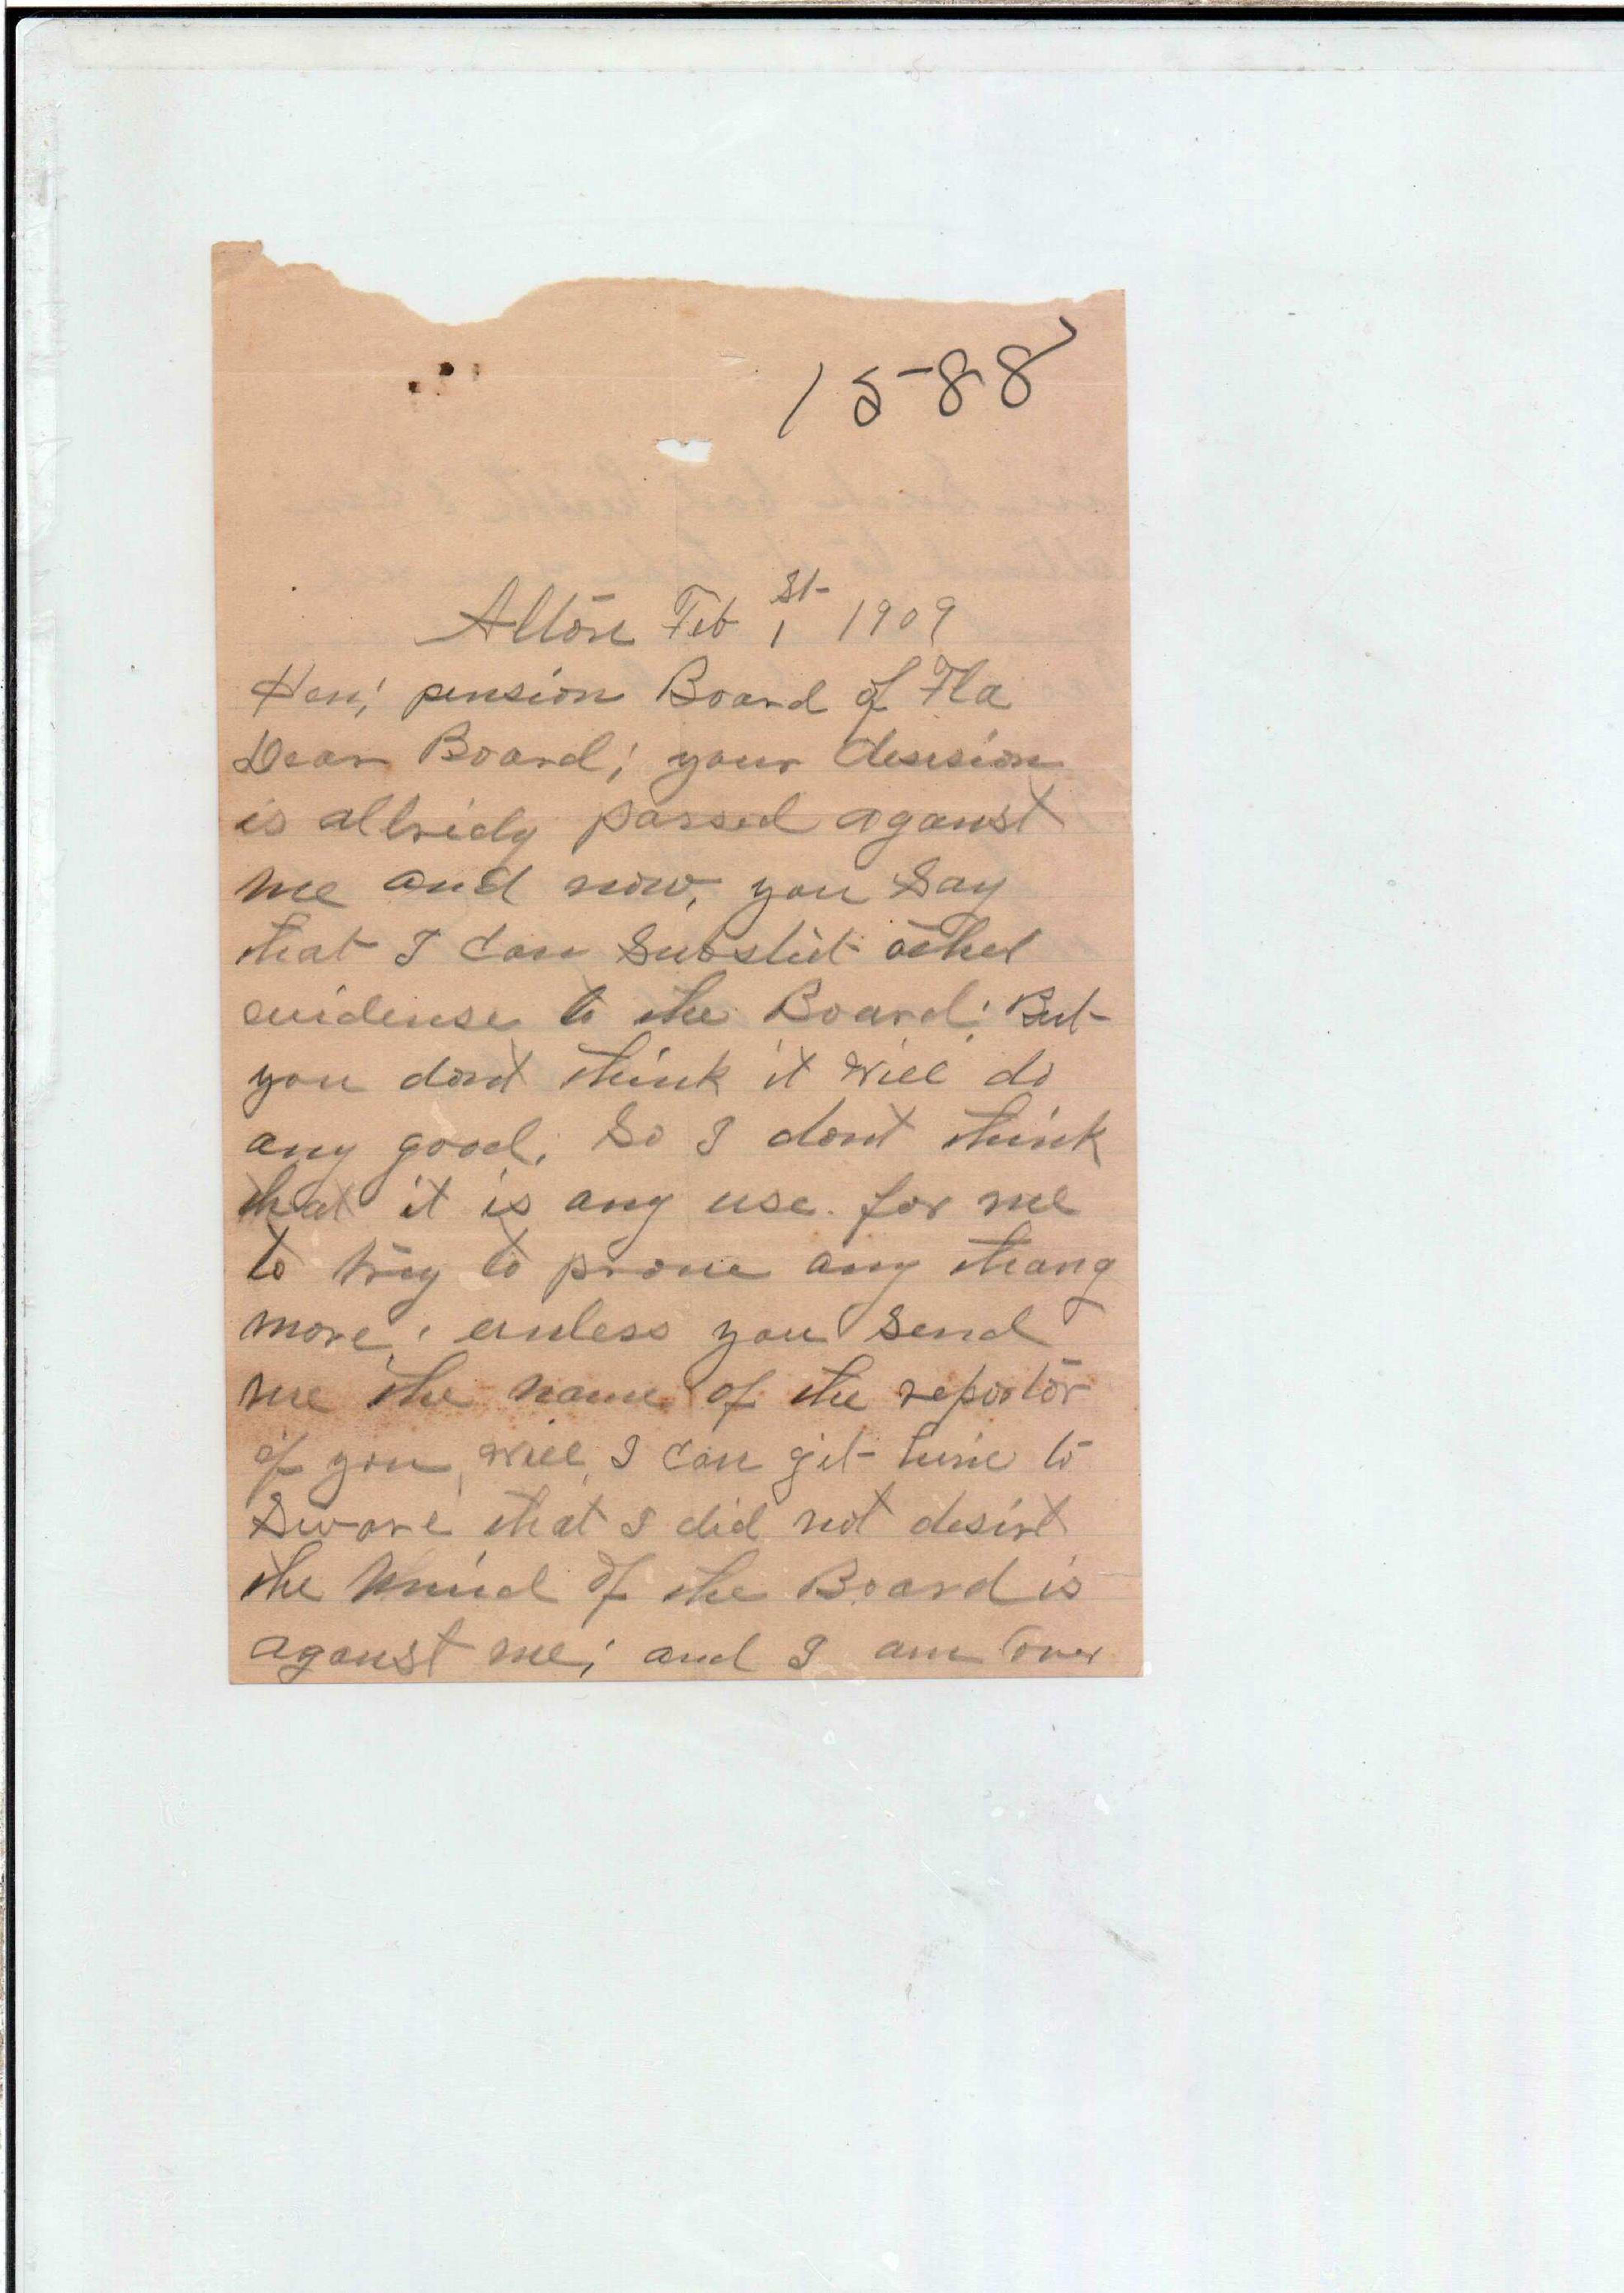 1588
Alton Feb 1st 1909
Hon; pension Board of Fla
Dear Board; your desision
is allridy passed aganst
me and now, you Say
that I can
evidense to the Board; But
you dont think it will do
any good. So I dont think
that it is any use. for me
to try to prove any thang
more, unless you Send
me the name of the reportor
if you will, I can git him to
Sware that I did not desirt
the mind of the Board is
aganst me; and I am over